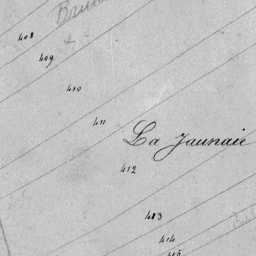 408
409
410
411
La Jaunaie
412
413
414
415